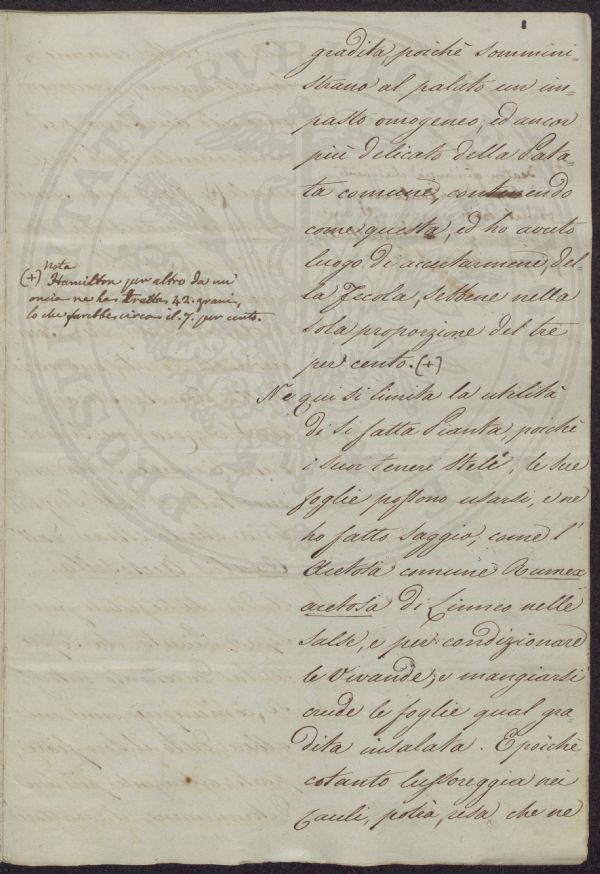 8
gradita, poichè sommini-
strano al palato un im-
pasto omogeneo, ed ancor
più delicato della Pata-
ta comune, contenendo
come questa, ed ho avuto
luogo di accertarmene, del-
la Fecola, sebbene nella
sola proporzione del tre
per cento. (+)
Nota
(+) Hamilton per altro da un'
oncia ne ha tratta 42. grani,
lo che farebbe circa il 7. per cento.
Ne qui si limita la utilità
di si fatta Pianta, poichè
i suoi teneri Steli, le sue
foglie possono usarsi, e ne
ho fatto saggio, come l'
Acetosa comune Rumex
acetosa di Linneo nelle
salse, e per condizionare
le vivande, e mangiarsi
crude le foglie qual gra-
dita insalata. E poichè
cotanto lussoreggia nei
Cauli, potrà, resa che ne